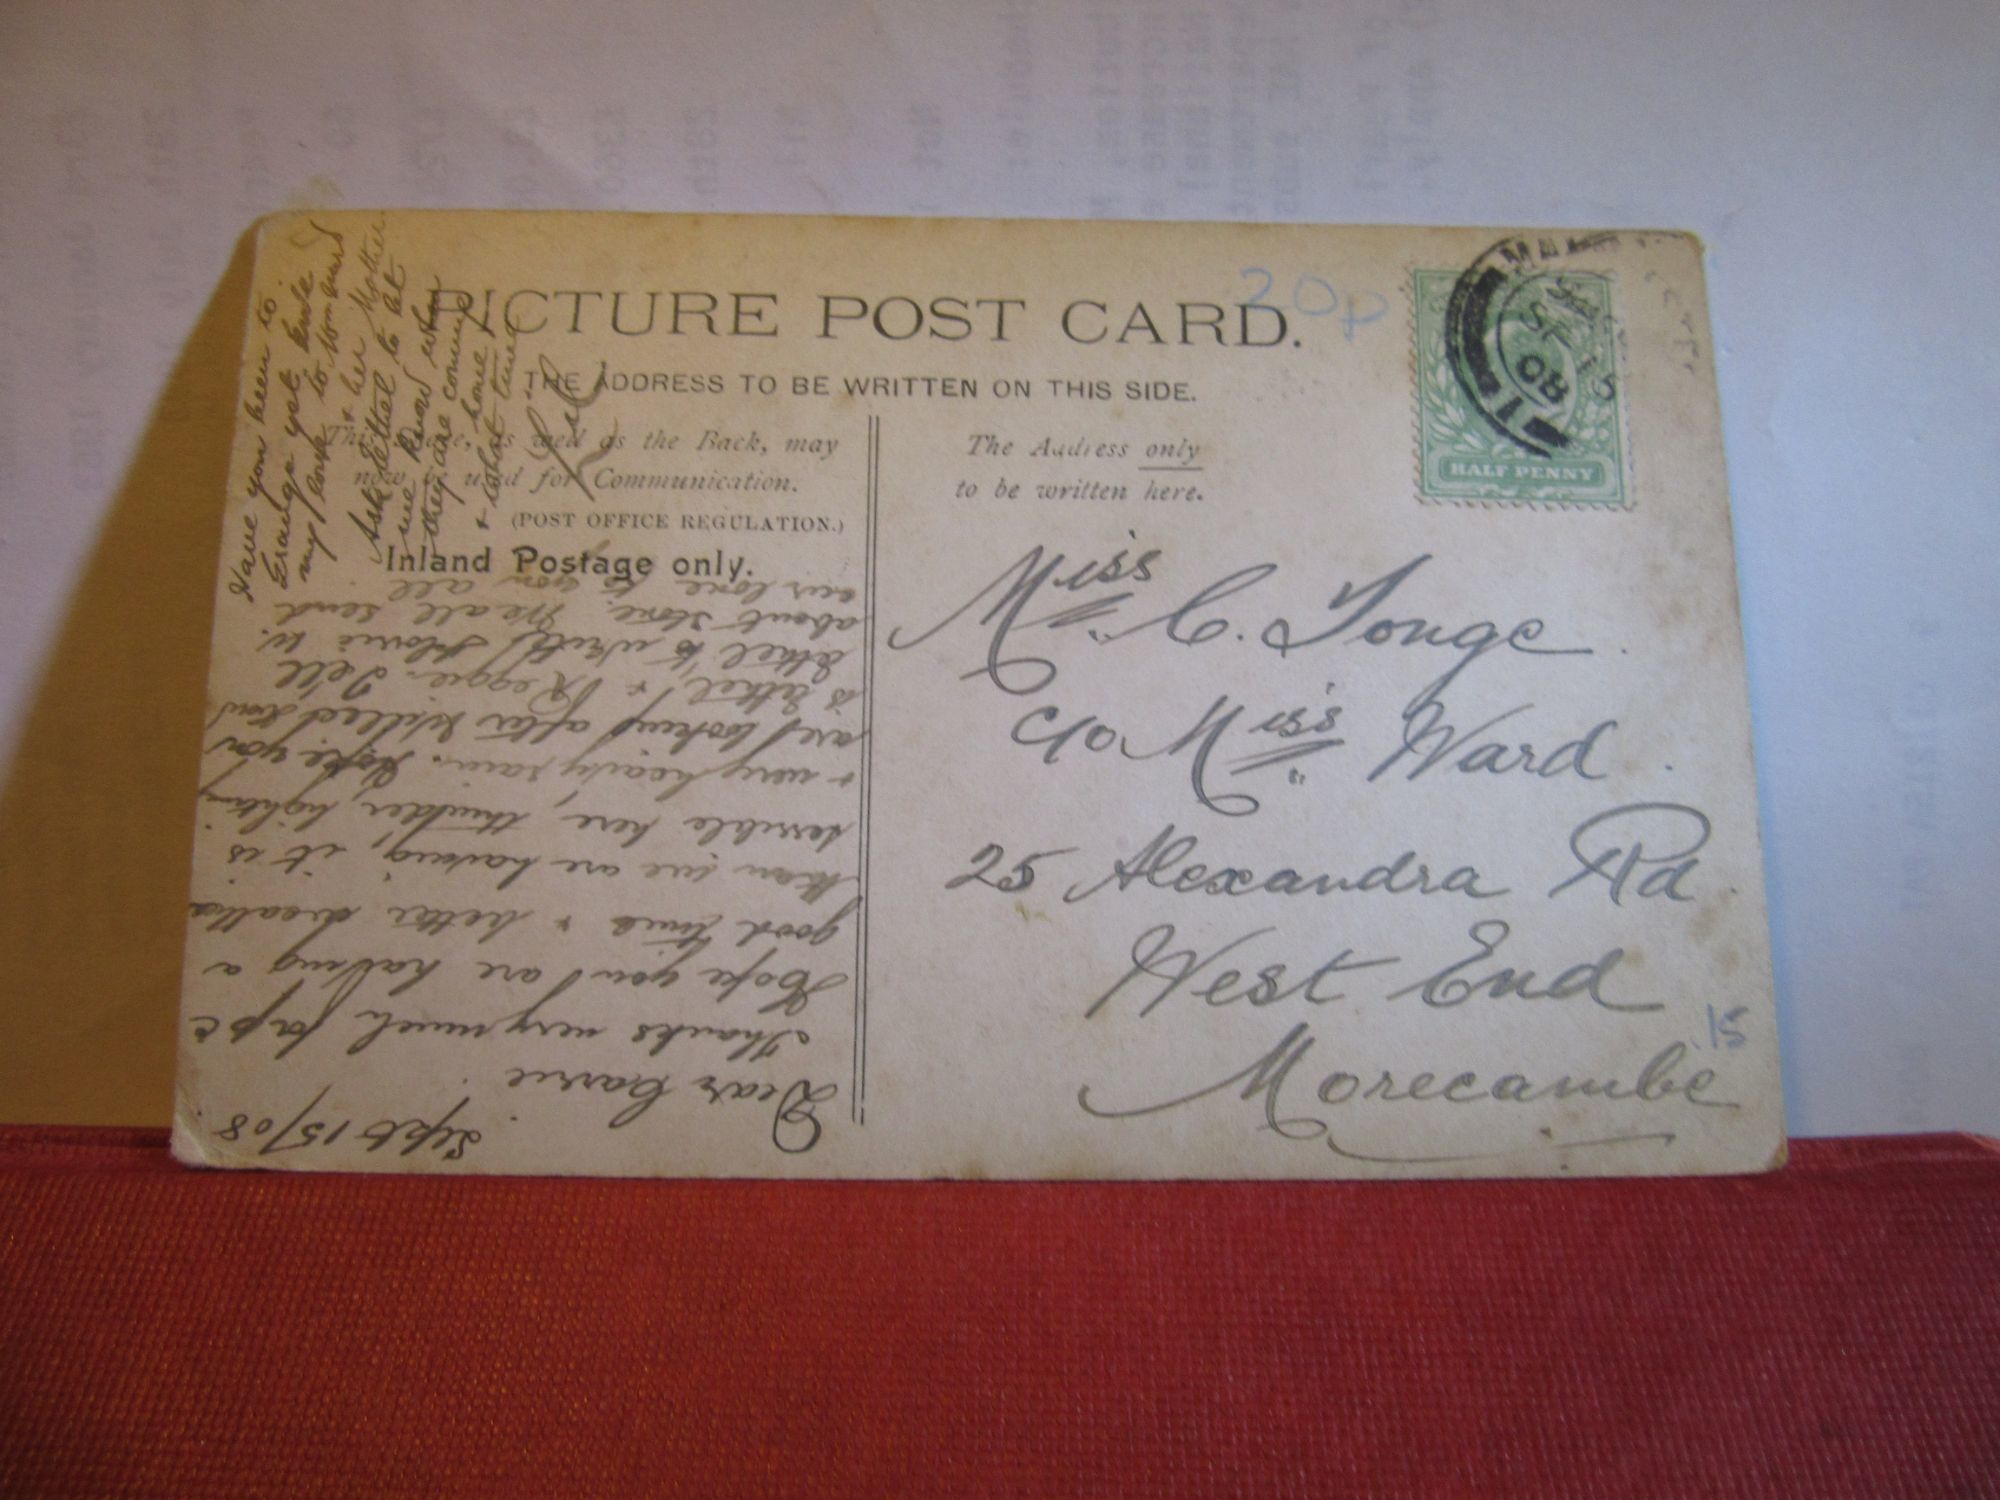 PICTURE POST CARD.
20p
THE ADDRESS TO BE WRITTEN ON THIS SIDE.
This space, as well as the Back, may
now be used for Communication.
(POST OFFICE REGULATION.)
Inland Postage only.
The Address only
to be written here.
HALF PENNY
SP 15
08
Miss C. Tonge
c/o Miss Ward
25 Alexandra Rd
West End
Morecambe
15
Sept 15/08
Dear Carrie
Thanks very much for p c
Hope you are having a
good time & better weather
than we are having, it is
terrible here, thunder, lightning
& very heavy rain. Hope you
are looking after Willed. How
is Ethel & Reggie. Tell
Ethel to write Florrie W.
about stone. We all send
our love to you all
Have you been to
Grange yet. Give
my love to
& her Mother.
Ask Ethel to let
me know when
they are coming
home
& what time